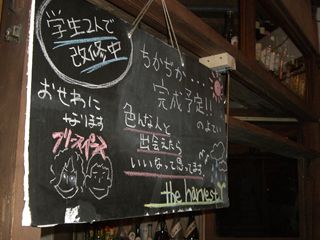 学生2人で
改修中
おせわに
なります
フリースペース
ちかぢか...
完成予定!!
のよてい
色んな人と
出会えたら
いいなって思ってます。
the harvest